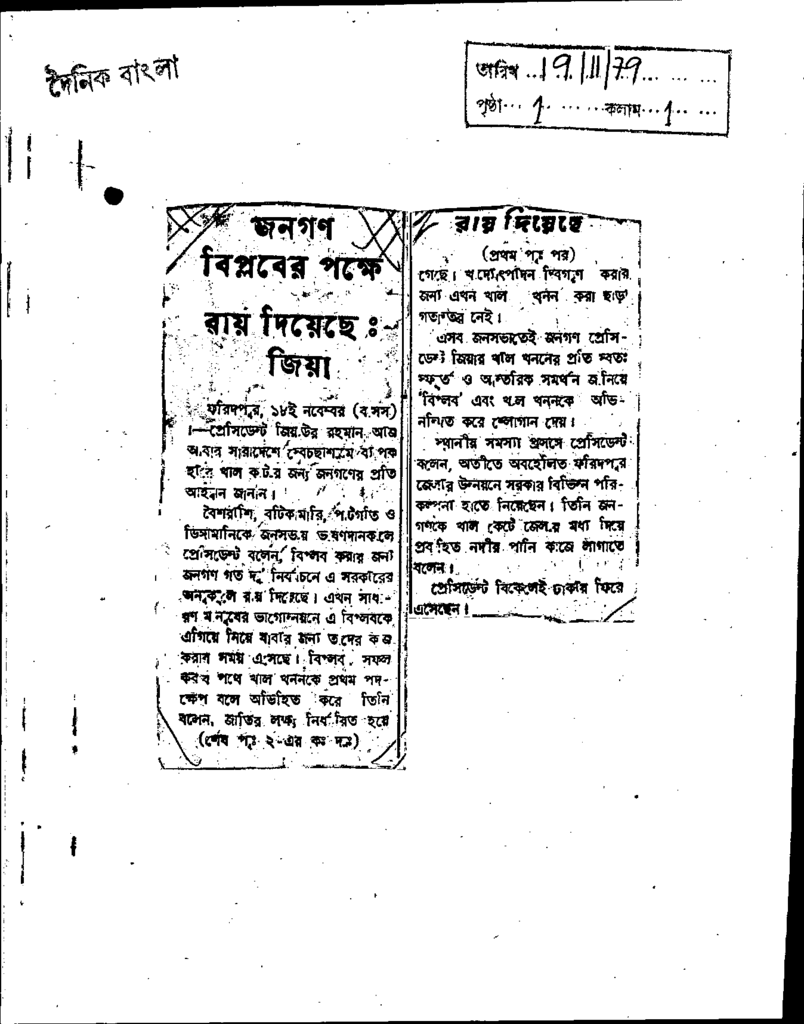 দৈনিক বাংলা
তারিখ ..19/11/79... ... ...
পৃষ্ঠা... 1 ... ...কলাম... 1 .. ...
জনগণ
বিপ্লবের পক্ষে
রায় দিয়েছে :
জিয়া
ফরিদপুর, ১৮ই নবেম্বর (বাসস)
।—প্রেসিডেন্ট জিয়াউর রহমান আজ
আবার সারাদেশে স্বেচ্ছাশ্রমে ব্যাপক
হারে খাল কাটার জন্য জনগণের প্রতি
আহ্বান জানান।
বৈশরাশি, বটিকামারি, পাটগাতি ও
ডিঙ্গামানিকে জনসভায় ভাষণদানকালে
প্রেসিডেন্ট বলেন, বিপ্লব করার জন্য
জনগণ গত দু' নির্বাচনে এ সরকারের
অনুকূলে রায় দিয়েছে। এখন সাধা-
রণ মানুষের ভাগ্যোন্নয়নে এ বিপ্লবকে
এগিয়ে নিয়ে যাবার জন্য তাদের কাজ
করার সময় এসেছে। বিপ্লব সফল
করার পথে খাল খননকে প্রথম পদ-
ক্ষেপ বলে অভিহিত করে তিনি
বলেন, জাতির লক্ষ্য নির্ধারিত হয়ে
(শেষ পৃঃ ২-এর কঃ দ্রঃ)
রায় দিয়েছে
(প্রথম পৃঃ পর)
গেছে। খাদ্যোৎপাদন দ্বিগুণ করার
জন্য এখন খাল খনন করা ছাড়া
গত্যন্তর নেই।
এসব জনসভাতেই জনগণ প্রেসি-
ডেন্ট জিয়ার খাল খননের প্রতি স্বতঃ
স্ফূর্ত ও আন্তরিক সমর্থন জানিয়ে
'বিপ্লব' এবং খাল খননকে অভি-
নন্দিত করে শ্লোগান দেয়।
স্থানীয় সমস্যা প্রসঙ্গে প্রেসিডেন্ট
বলেন, অতীতে অবহেলিত ফরিদপুর
জেলার উন্নয়নে সরকার বিভিন্ন পরি-
কল্পনা হাতে নিয়েছেন। তিনি জন-
গণকে খাল কেটে জেলার মধ্য দিয়ে
প্রবাহিত নদীর পানি কাজে লাগাতে
বলেন।
প্রেসিডেন্ট বিকেলেই ঢাকায় ফিরে
এসেছেন।